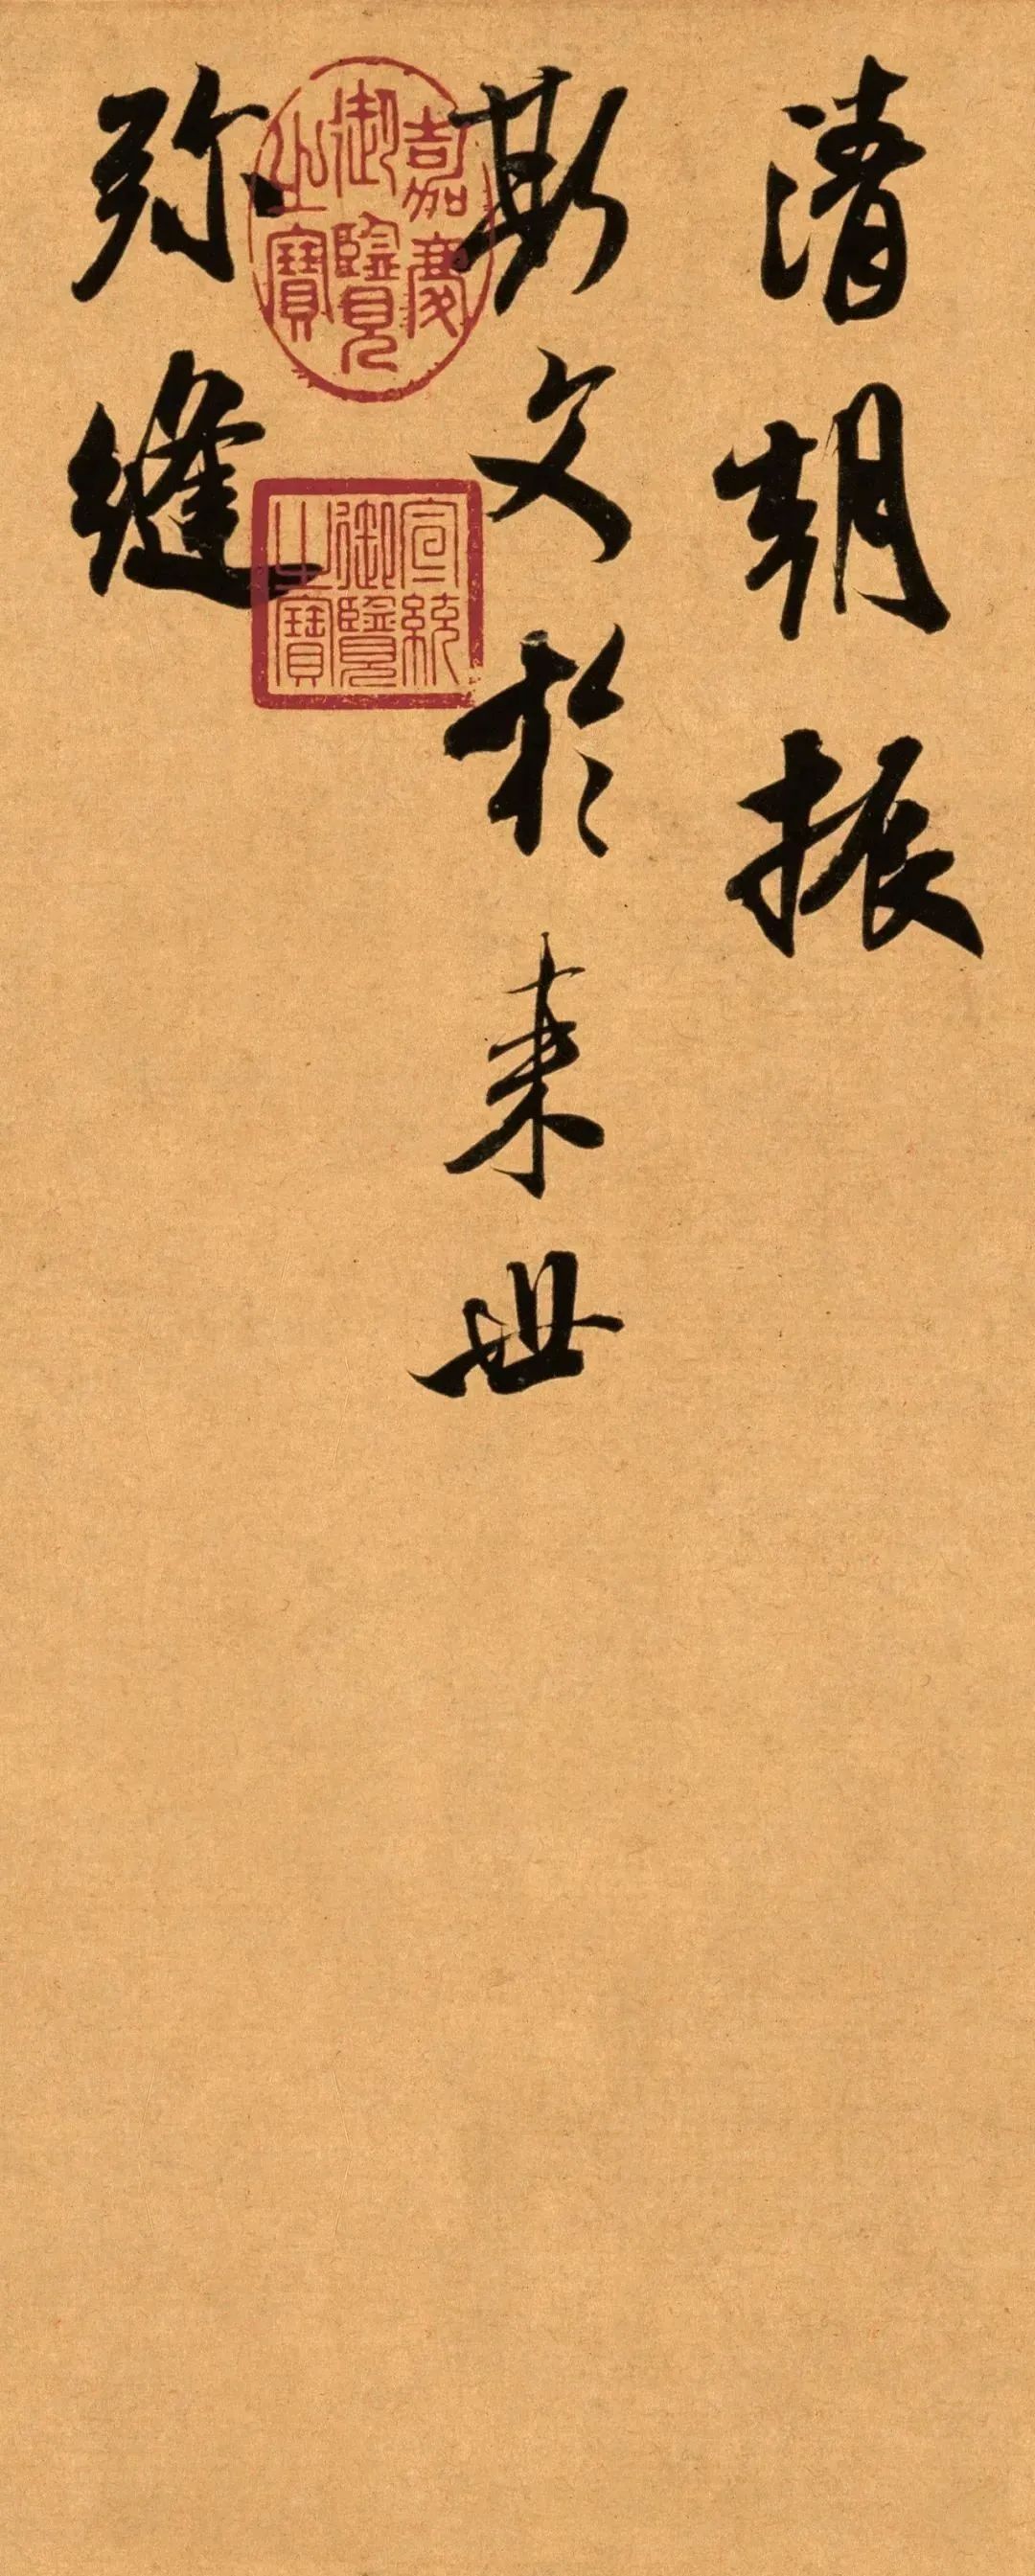 清朝振
斯文於来世
弥縫
嘉慶御覽之寶
宣統御覽之寶